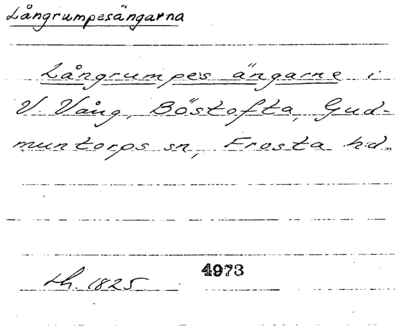 Långrumpesängarna
Långrumpes ängarne i
V. Vång, Böstofta, Gud-
muntorps sn, Frosta hd.
Lh. 1825
4973